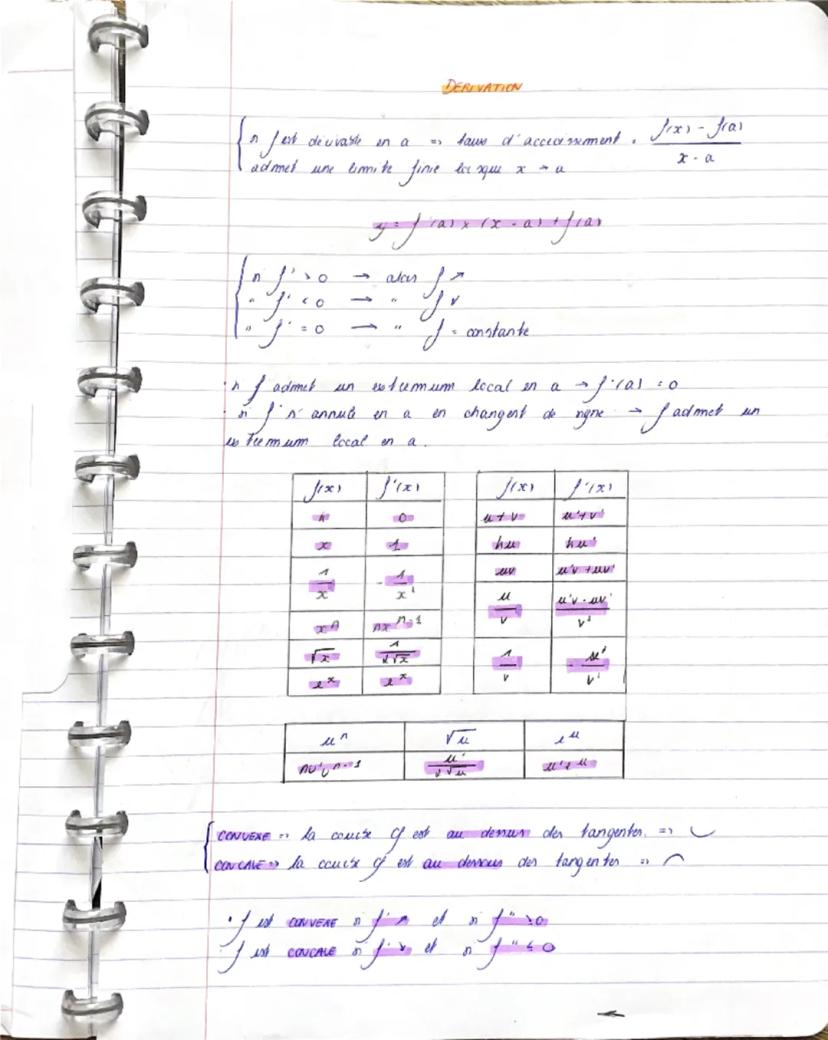 DERIVATION
si f est dérivable en a => taux d'accroissement : f(x) - f(a) / x - a
admet une limite finie lorsque x → a
y = f'(a) x (x - a) + f(a)
si f' > 0 → alors f ↗
" f' < 0 → " f ↘
" f' = 0 → " f = constante
si f admet un extremum local en a → f'(a) = 0
si f' s'annule en a en changent de signe → f admet un
extremum local en a.
f(x) f'(x) f(x) f'(x)
k 0 u + v u' + v'
x 1 ku ku'
1/x - 1/x² uv u'v + uv'
x^n nx^n-1 u/v u'v - uv' / v²
√x 1/2√x 1/v - v'/v²
e^x e^x
u^n √u e^u
nu'u^n-1 u'/2√u u'e^u
CONVEXE => la courbe Cf est au dessus des tangentes => ◡
CONCAVE => la courbe Cf est au dessous des tangentes => ◠
• f est CONVEXE si f' ↗ et si f'' ≥ 0
f est CONCAVE si f' ↘ et si f'' ≤ 0
←